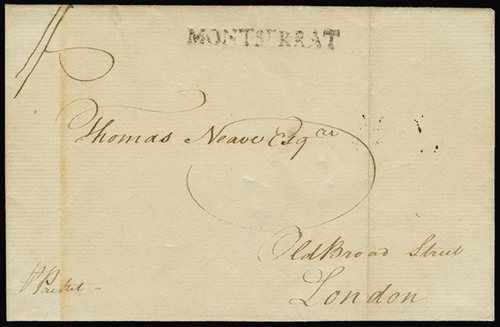 MONTSERRAT
Thomas Neave Esq.re
Old Broad Street
London
Packet